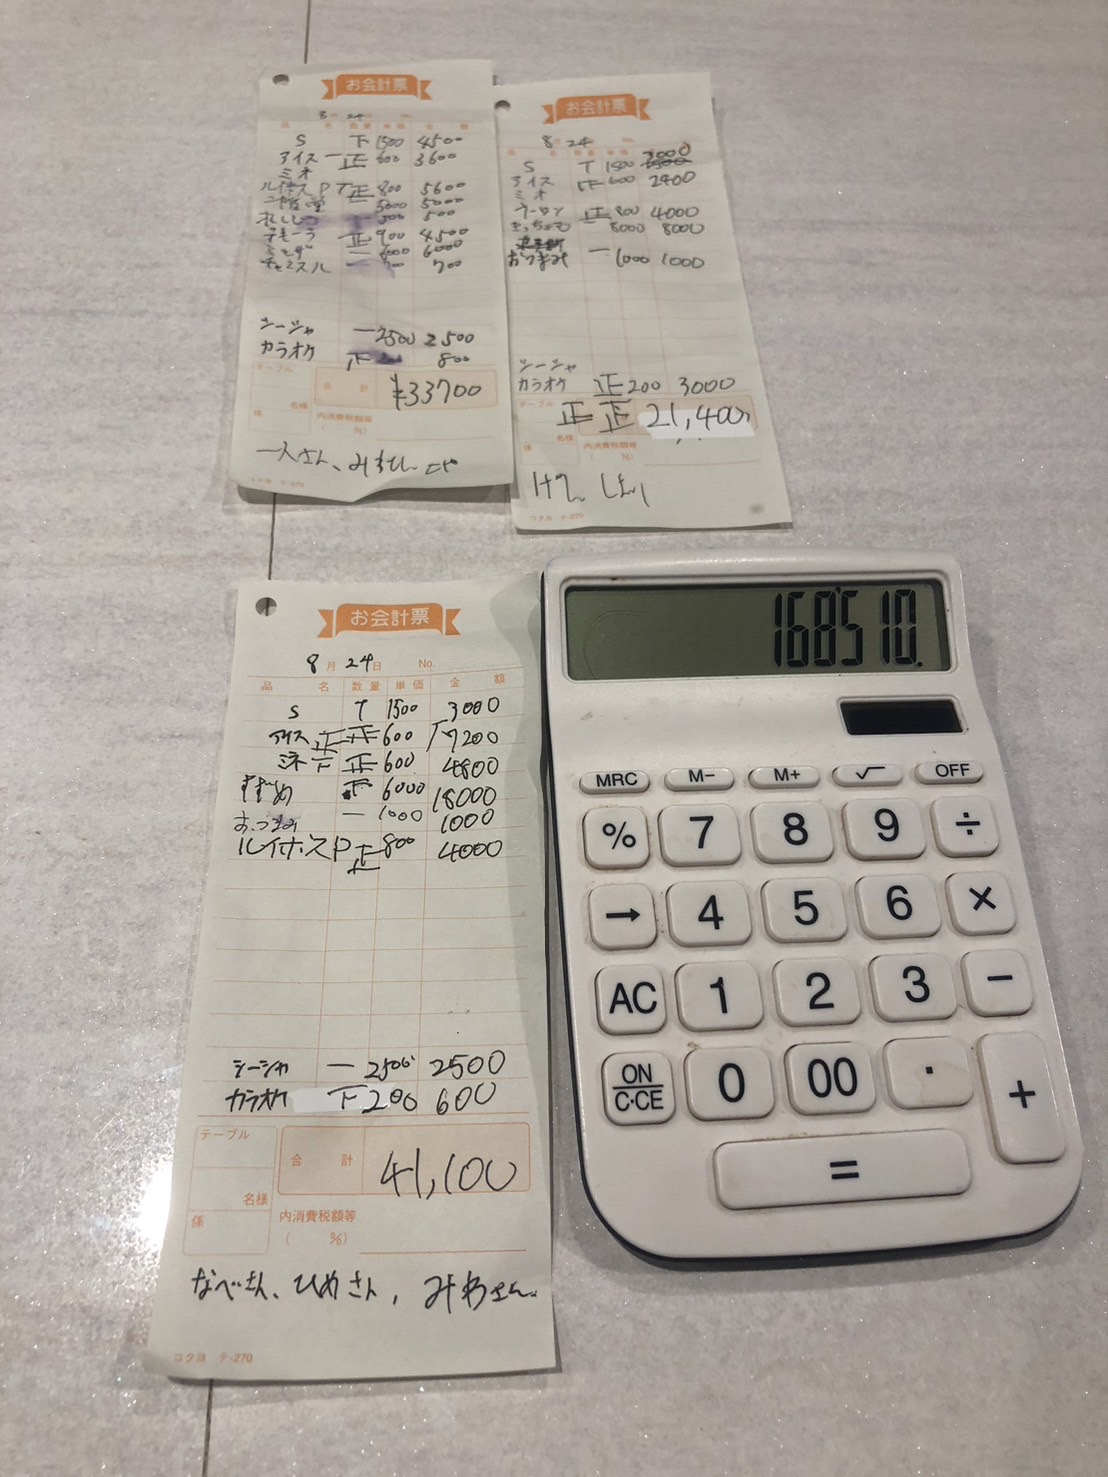 お会計票
8 24
S 下 1500 4500
アイス 一正 600 3600
ミオ
ルイボスP T正 800 5600
5000 5000
500 500
正 900 4500
一 6000 6000
チャミスル 一 700 700
シーシャ 一 2500 2500
カラオケ 正 800
テーブル
合計 ¥33700
名様
係
内消費税額等
( %)
コクヨ テ-270
お会計票
8 24 No.
S T 1500 3000
アイス 正 600 2400
ミオ
ウーロン 正 800 4000
8000 8000
おつまみ 一 1000 1000
シーシャ
カラオケ 正 200 3000
テーブル
正 正 21,400
名様
係
内消費税額等
( %)
コクヨ テ-270
お会計票
8月24日 No.
品名 数量 単価 金額
S T 1500 3000
アイス 正 正 600 7200
ミネ 下 正 600 4800
すずめ 下 6000 18000
おつまみ 一 1000 1000
ルイボスP 正 800 4000
シーシャ 一 2500 2500
カラオケ 下 200 600
テーブル
合計 41,100
名様
係
内消費税額等
( %)
なべさん、ひめさん、みわさん
コクヨ テ-270
168'510.
MRC M− M+ √ OFF
% 7 8 9 ÷
→ 4 5 6 ×
AC 1 2 3 −
ON C·CE 0 00 · +
=